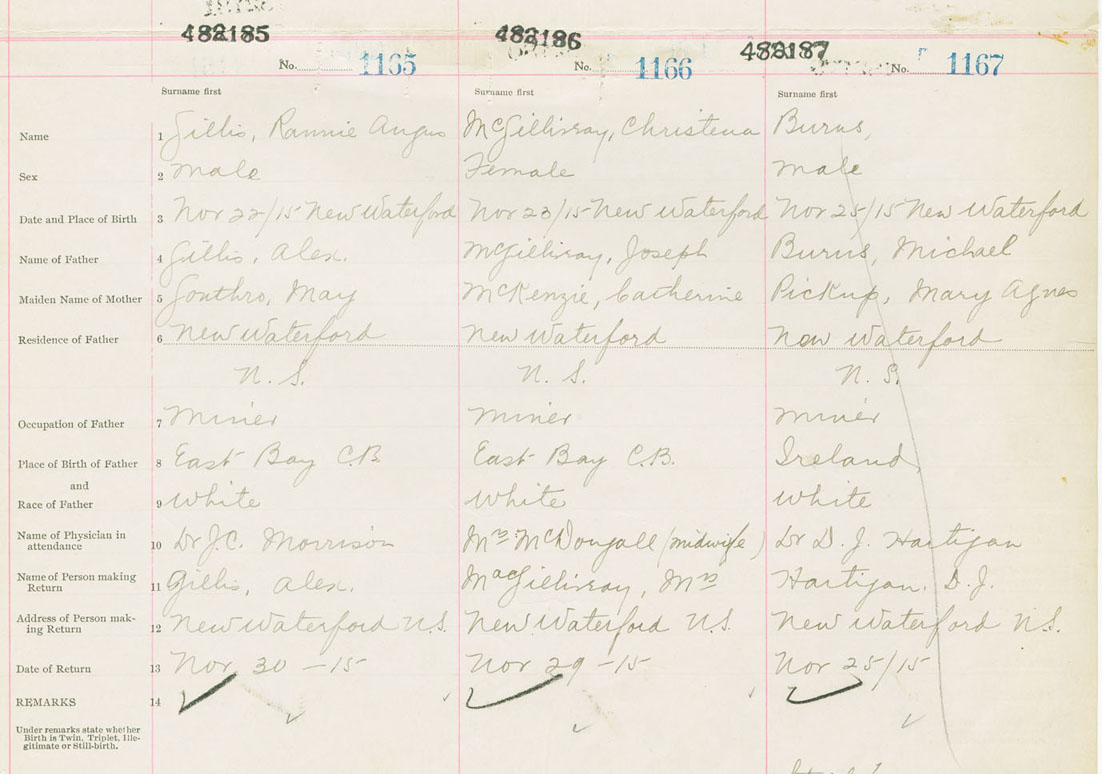 482185 482186 482187
No. 1165 No. 1166 No. 1167
Surname first Surname first Surname first
Name 1 Gillis, Rannie Angus McGillivray, Christena Burns,
Sex 2 male Female male
Date and Place of Birth 3 Nov 22/15 New Waterford Nov 23/15 New Waterford Nov 25/15 New Waterford
Name of Father 4 Gillis, Alex. McGillivray, Joseph Burns, Michael
Maiden Name of Mother 5 Gouthro, May McKenzie, Catherine Pickup, Mary Agnes
Residence of Father 6 New Waterford New Waterford New Waterford
N. S. N. S. N. S.
Occupation of Father 7 Miner Miner Miner
Place of Birth of Father 8 East Bay C.B. East Bay C.B. Ireland
and
Race of Father 9 White White White
Name of Physician in
attendance 10 Dr J.C. Morrison Mrs McDougall (midwife) Dr D. J. Hartigan
Name of Person making
Return 11 Gillis, Alex. MacGillivray, Mrs Hartigan, D.J.
Address of Person mak-
ing Return 12 New Waterford N.S. New Waterford N.S. New Waterford N.S.
Date of Return 13 Nov 30 - 15 Nov 29 - 15 Nov 25/15
REMARKS 14
Under remarks state whether
Birth is Twin, Triplet, Ille-
gitimate or Still-birth.